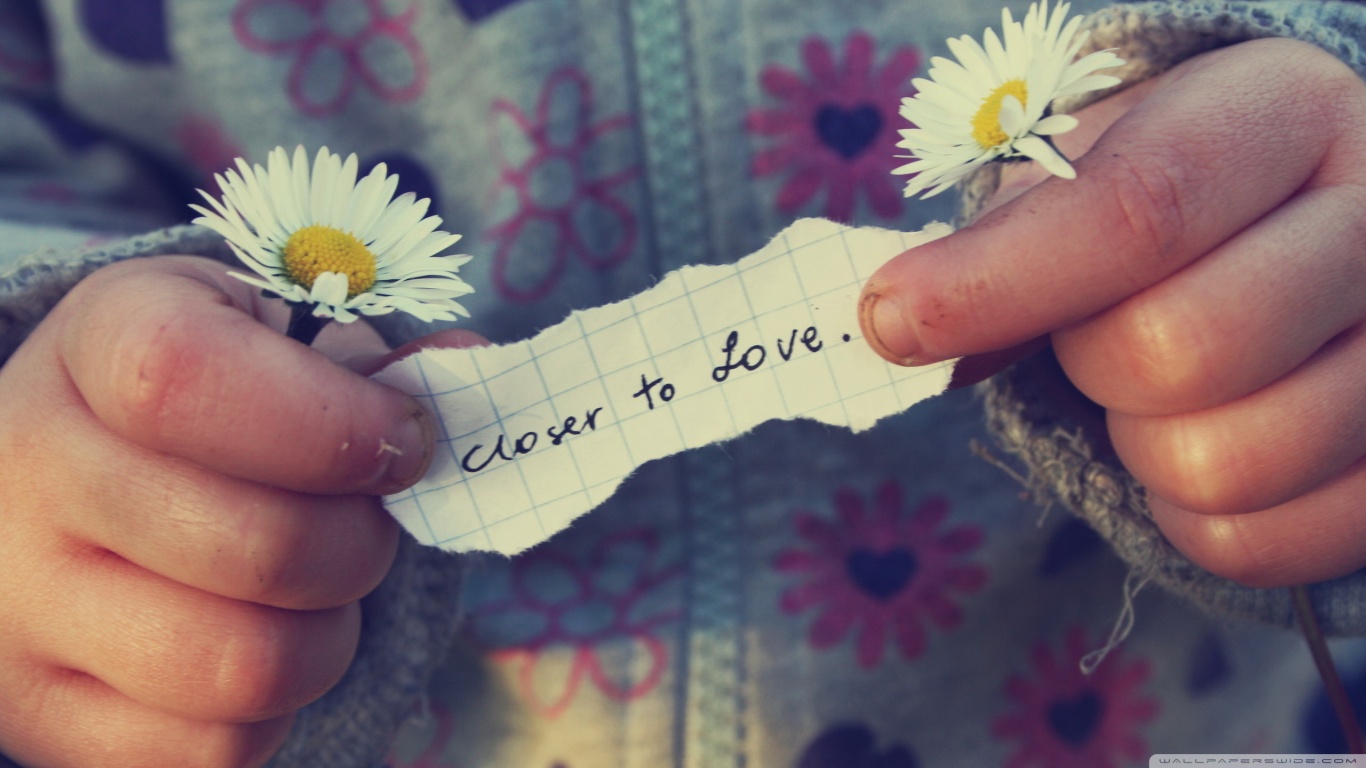 closer to Love.
WALLPAPERSWIDE.COM